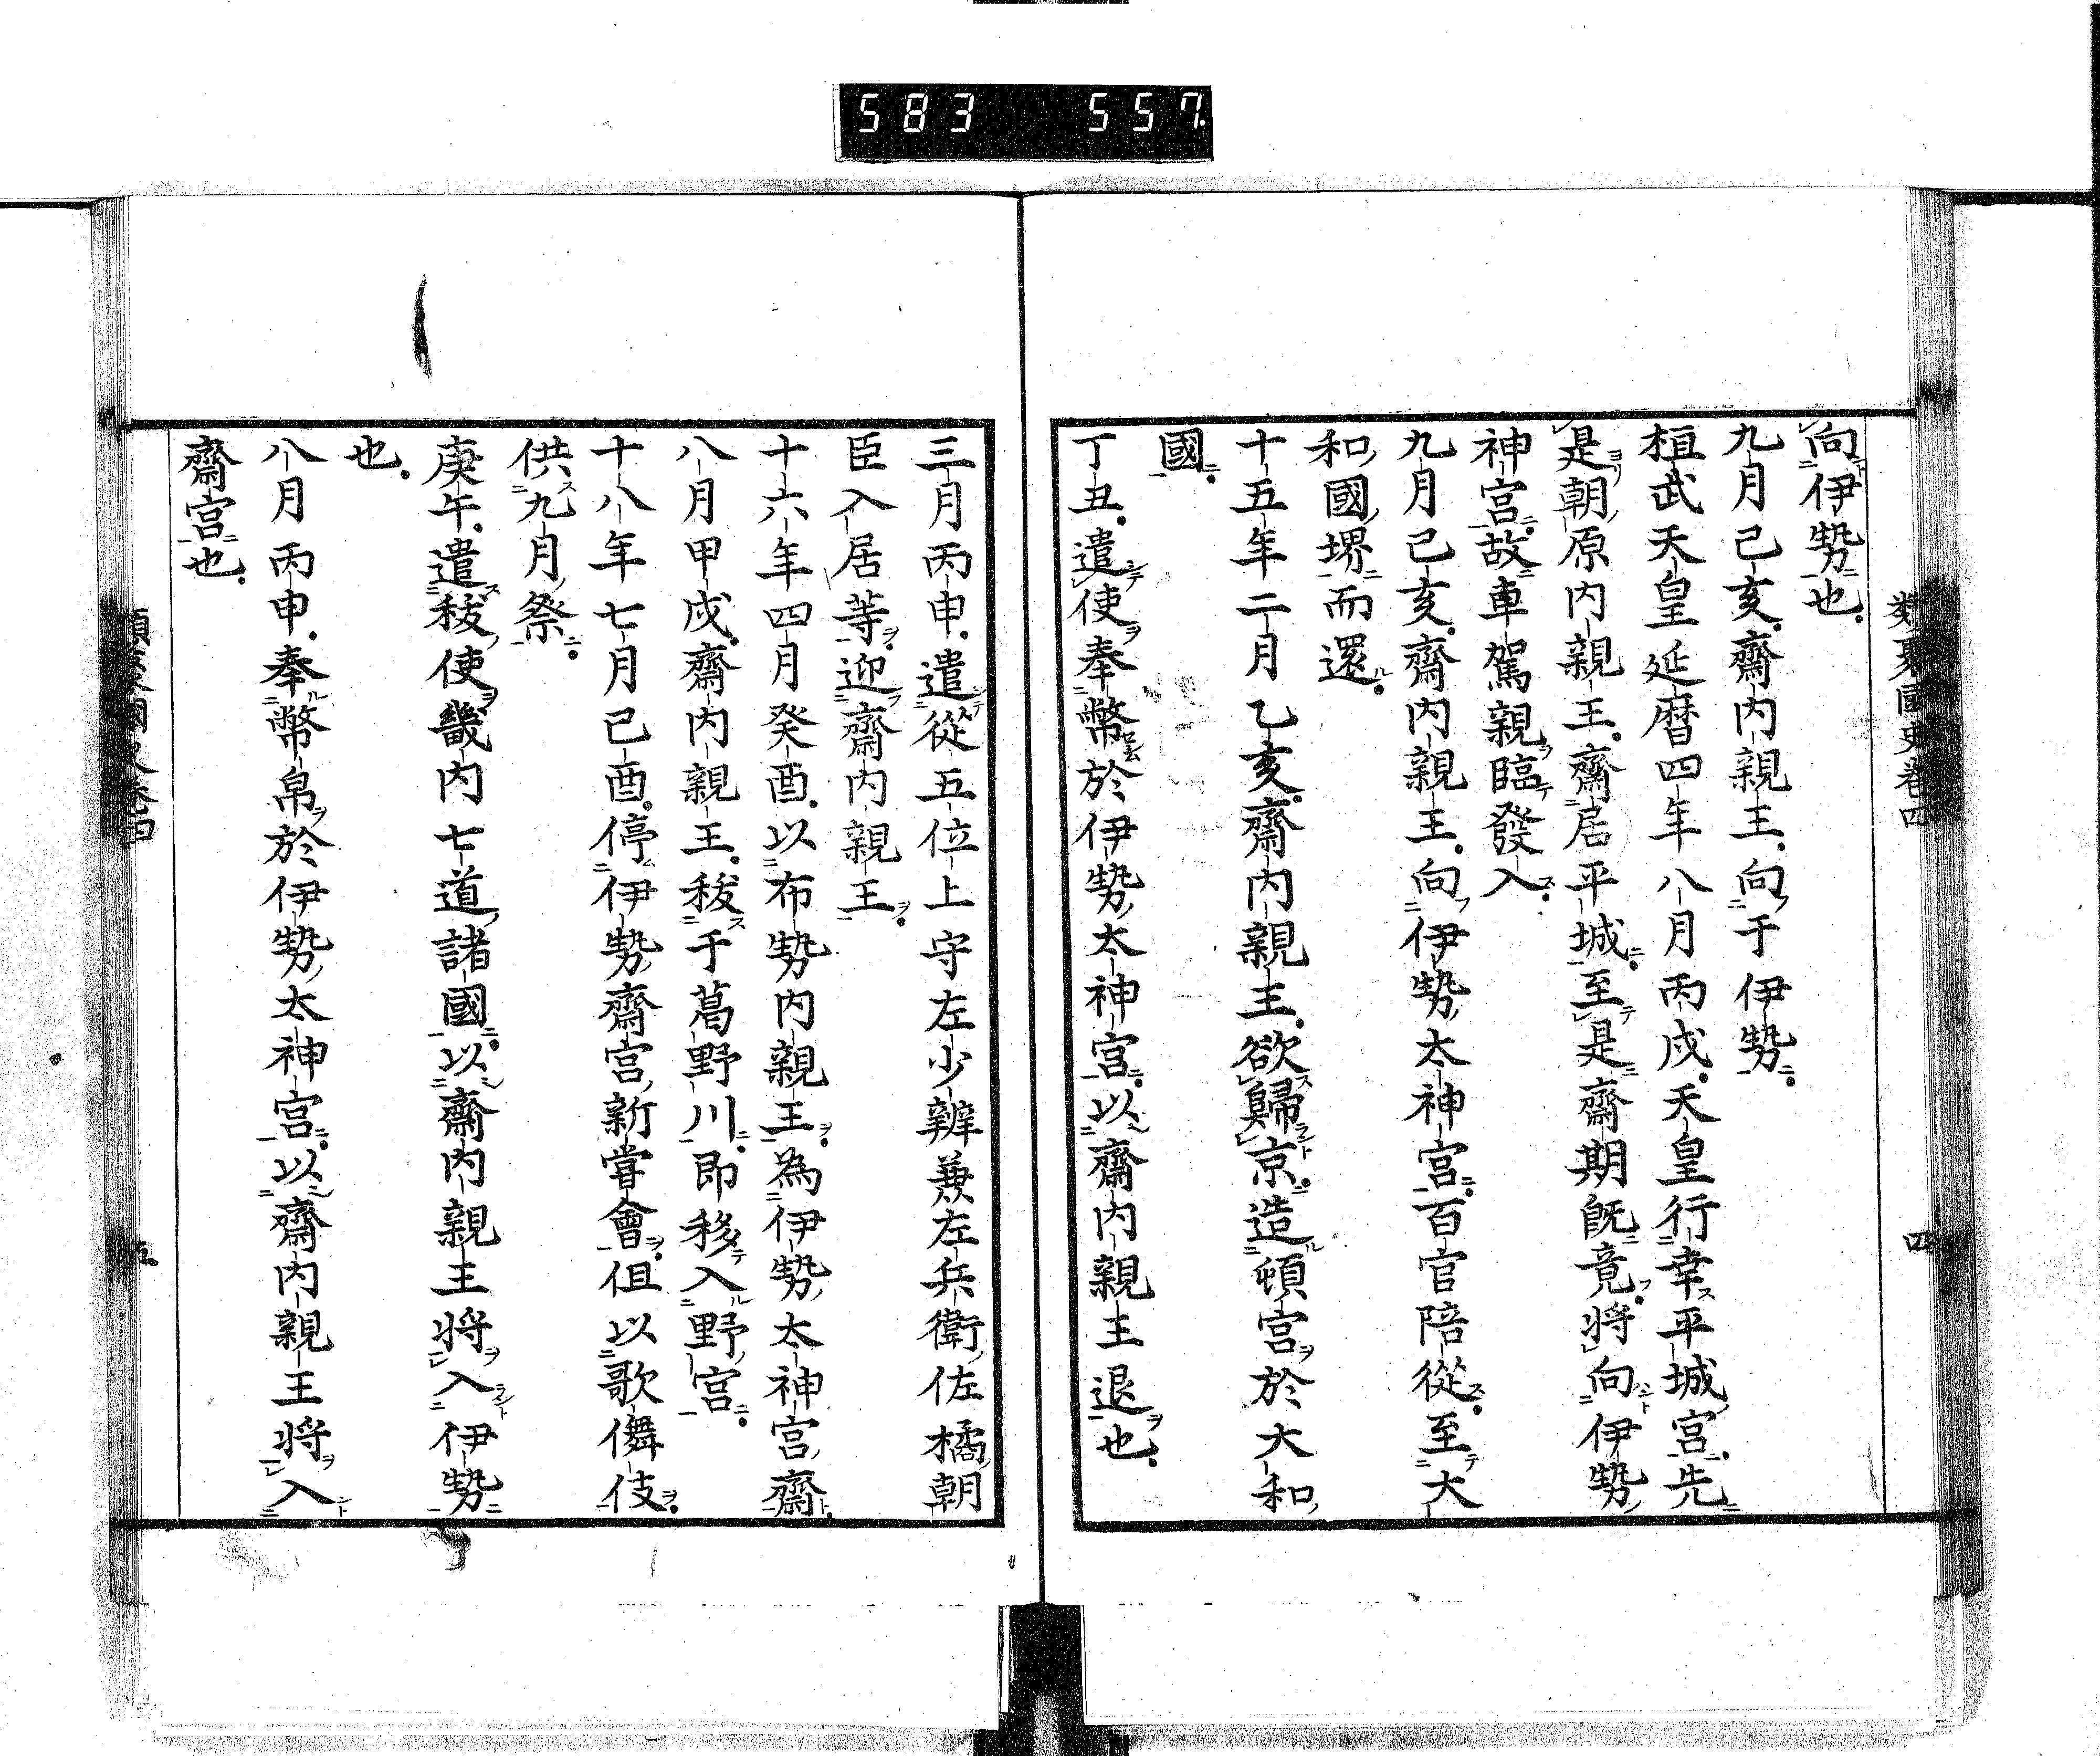 583 557
類聚國史卷四 四
向伊勢也。
九月己亥。齋内親王。向于伊勢。
桓武天皇延暦四年八月丙戌。天皇行幸平城宮。先
是朝原内親王。齋居平城。至是齋期既竟。將向伊勢
神宮。故車駕親臨發入。
九月己亥。齋内親王。向伊勢太神宮。百官陪從。至大
和國堺而還。
十五年二月乙亥。齋内親王。欲歸京。造頓宮於大和
國。
丁丑。遣使奉幣於伊勢太神宮。以齋内親王退也。
三月丙申。遣從五位上守左少辨兼左兵衛佐橘朝
臣入居等。迎齋内親王。
十六年四月癸酉。以布勢内親王。為伊勢太神宮齋。
八月甲戌。齋内親王。秡于葛野川。即移入野宮。
十八年七月己酉。停伊勢齋宮新嘗會。但以歌儛伎。
供九月祭。
庚午。遣秡使畿内七道諸國。以齋内親王將入伊勢
也。
八月丙申。奉幣帛於伊勢太神宮。以齋内親王將入
齋宮也。
類聚國史卷四 五